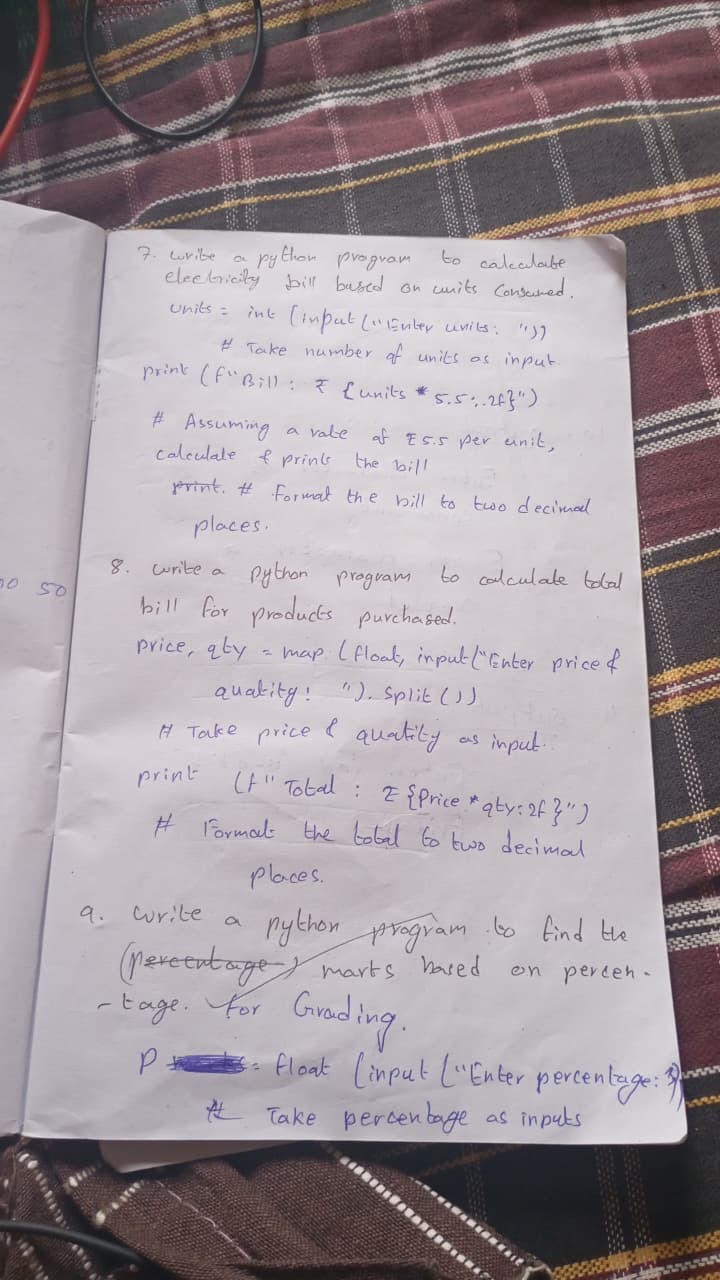 7. write a python program to calculate
electricity bill bused on units Consumed.
units = int (input ("Enter units: "))
# Take number of units as input
print (f"Bill : ₹ {units * 5.5:.2f}")
# Assuming a rate of ₹5.5 per unit,
calculate & prints the bill
print. # Format the bill to two decimal
places.
00 50
8. write a python program to calculate total
bill for products purchased.
price, qty = map (float, input("Enter price &
quatity: "). Split ())
# Take price & quatity as input.
print (f" Total : ₹ {Price * qty:2f}")
# Format the total to two decimal
places.
9. write a python program to find the
(percentage) marts based on percen-
-tage. for Grading.
P = float (input ("Enter percentage: "))
# Take percentage as inputs